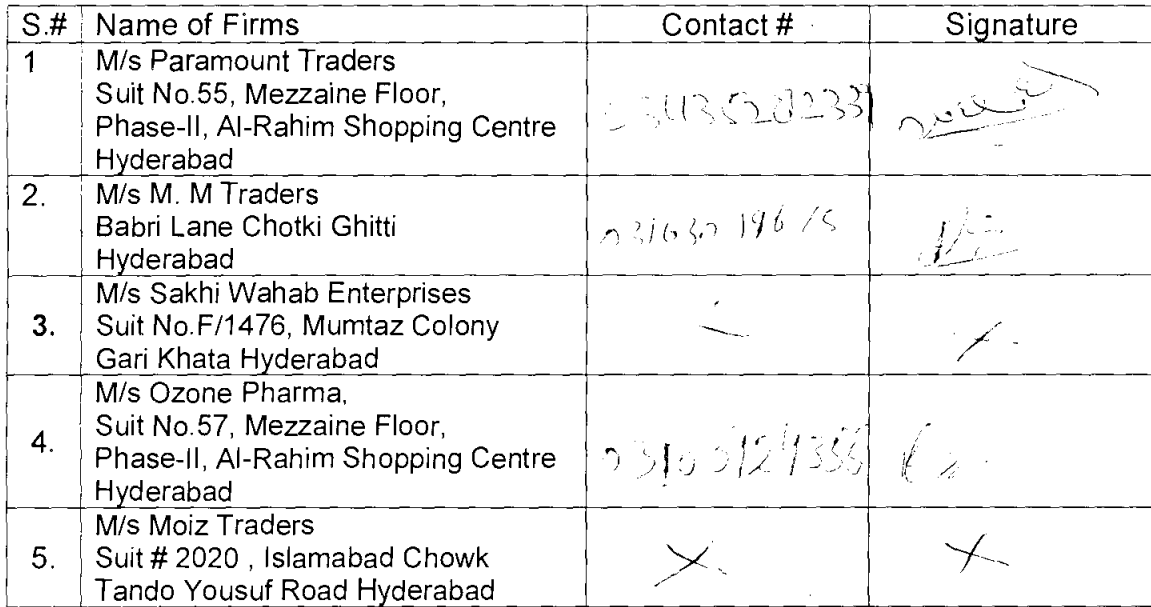 S.# Name of Firms Contact # Signature
1 M/s Paramount Traders
Suit No.55, Mezzaine Floor,
Phase-II, Al-Rahim Shopping Centre
Hyderabad
2. M/s M. M Traders
Babri Lane Chotki Ghitti
Hyderabad
M/s Sakhi Wahab Enterprises
3. Suit No.F/1476, Mumtaz Colony
Gari Khata Hyderabad
M/s Ozone Pharma,
Suit No.57, Mezzaine Floor,
4. Phase-II, Al-Rahim Shopping Centre
Hyderabad
M/s Moiz Traders
5. Suit # 2020 , Islamabad Chowk
Tando Yousuf Road Hyderabad